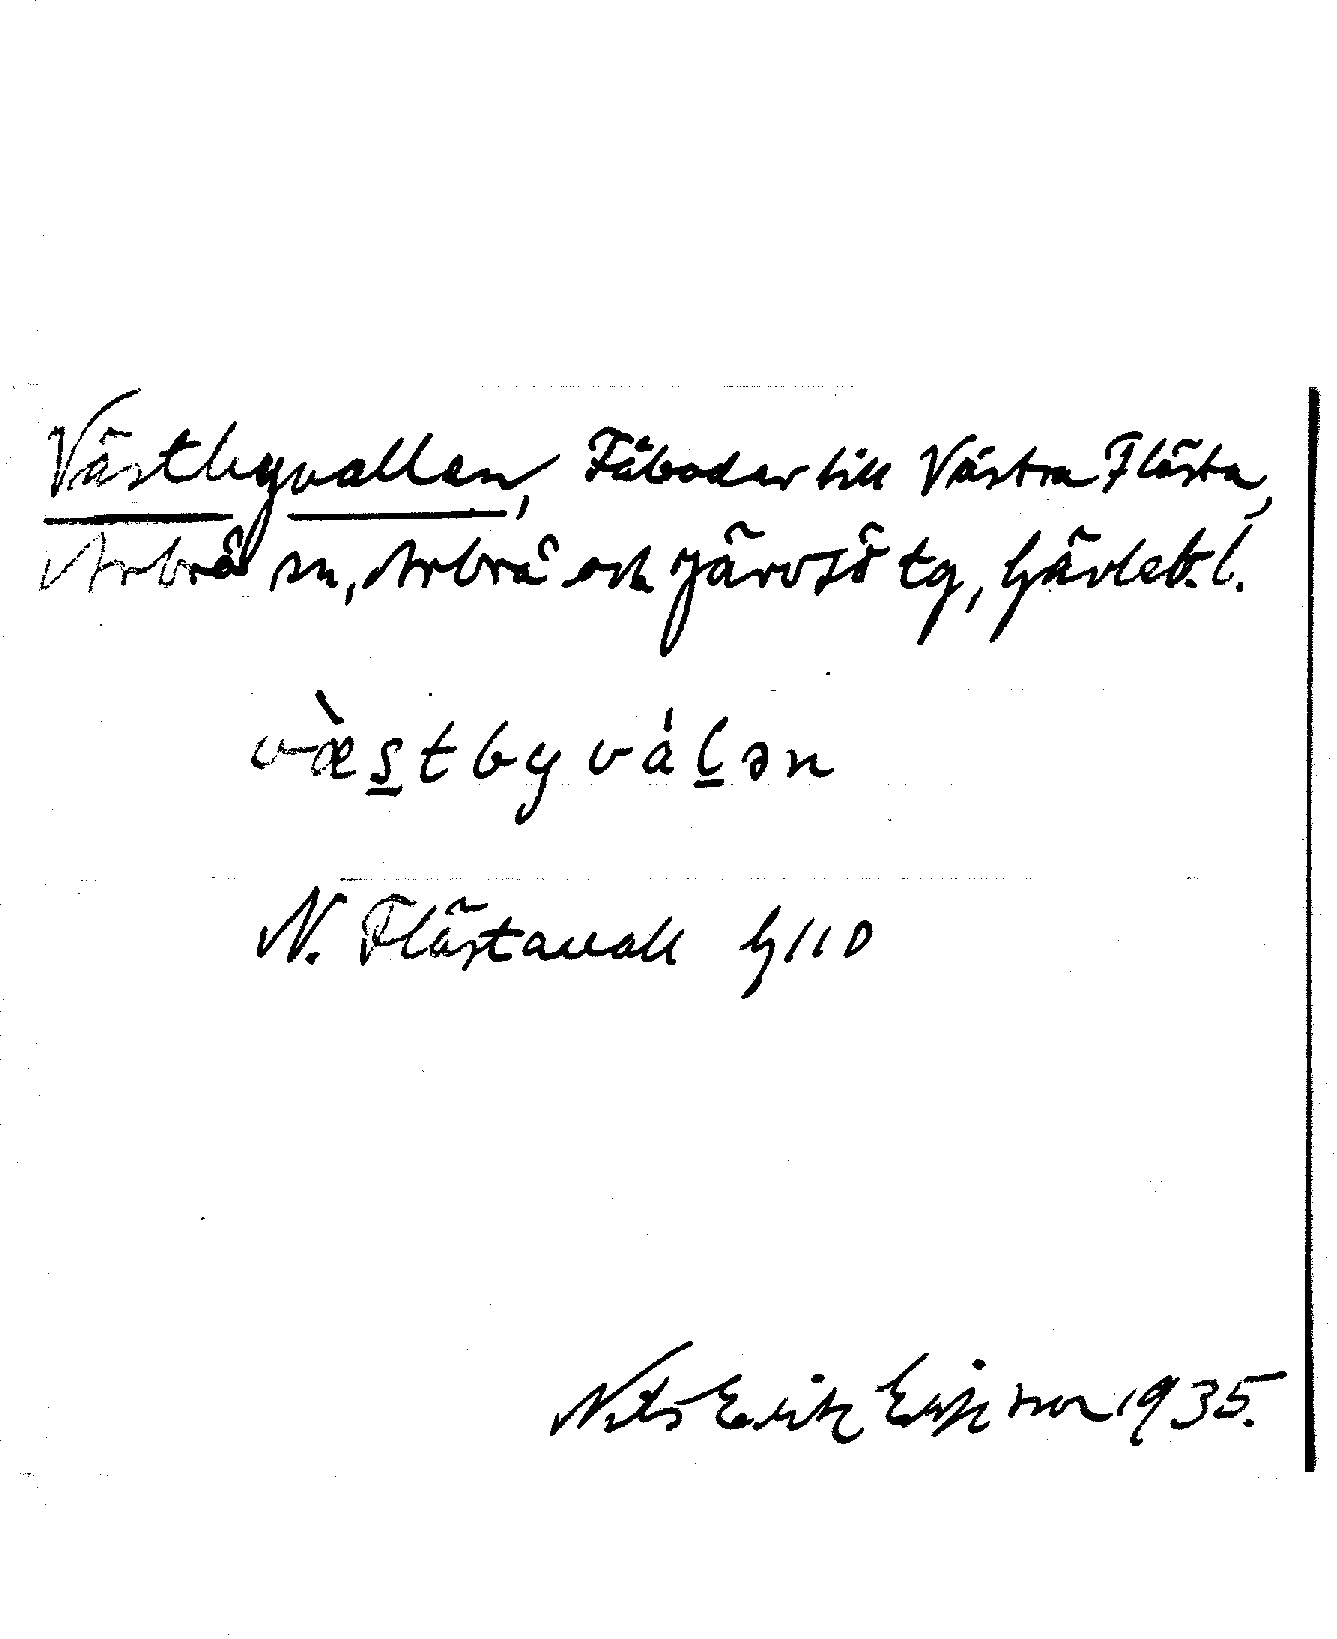 Västbyvallen, Fäbodar till Västra Flästa,
Arbrå sn, Arbrå och Järvsö tg, Gävleb. l.
væ̀s̲tbyvál̲ən
N. Flästavall G110
Nils Erik Eriksson 1935.